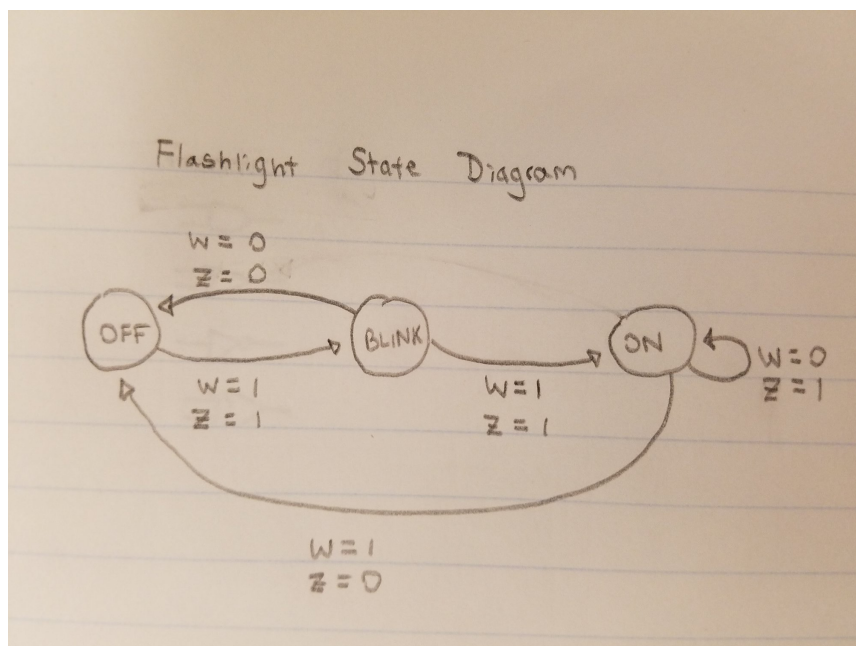 Flashlight State Diagram
W = 0
Z = 0
OFF
BLINK
ON
W = 0
Z = 1
W = 1
Z = 1
W = 1
Z = 1
W = 1
Z = 0